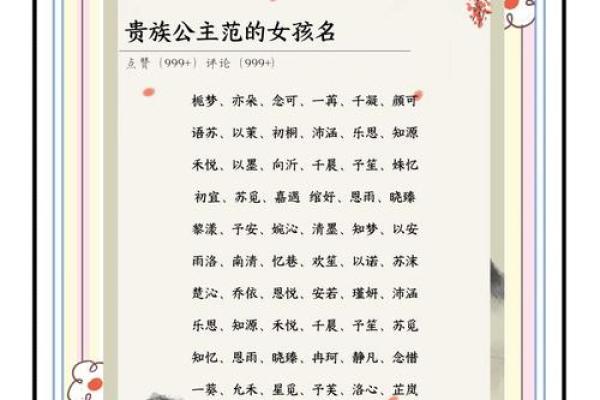 贵族公主范的女孩名
点赞（999+）评论（999+）
栀梦、亦朵、念可、一苒、千凝、颜可
语苏、以茉、初桐、沛涵、乐思、知源
禾悦、以墨、向沂、千晨、子笙、姝忆
初宜、苏觅、嘉遇 绾妤、恩雨、晓臻
黎漾、子安、婉沁、清墨、知梦、以安
雨洛、南清、忆巷、欢笙、以诺、苏沫
楚沁、乔依、恩悦、安若、瑾妍、沛涵
乐思、知源、禾悦、千晨、子笙、苏觅
知忆、恩雨、晓臻、冉珂、静凡、念惜
一葵、允禾、星觅、子芙、洛心、芷岚